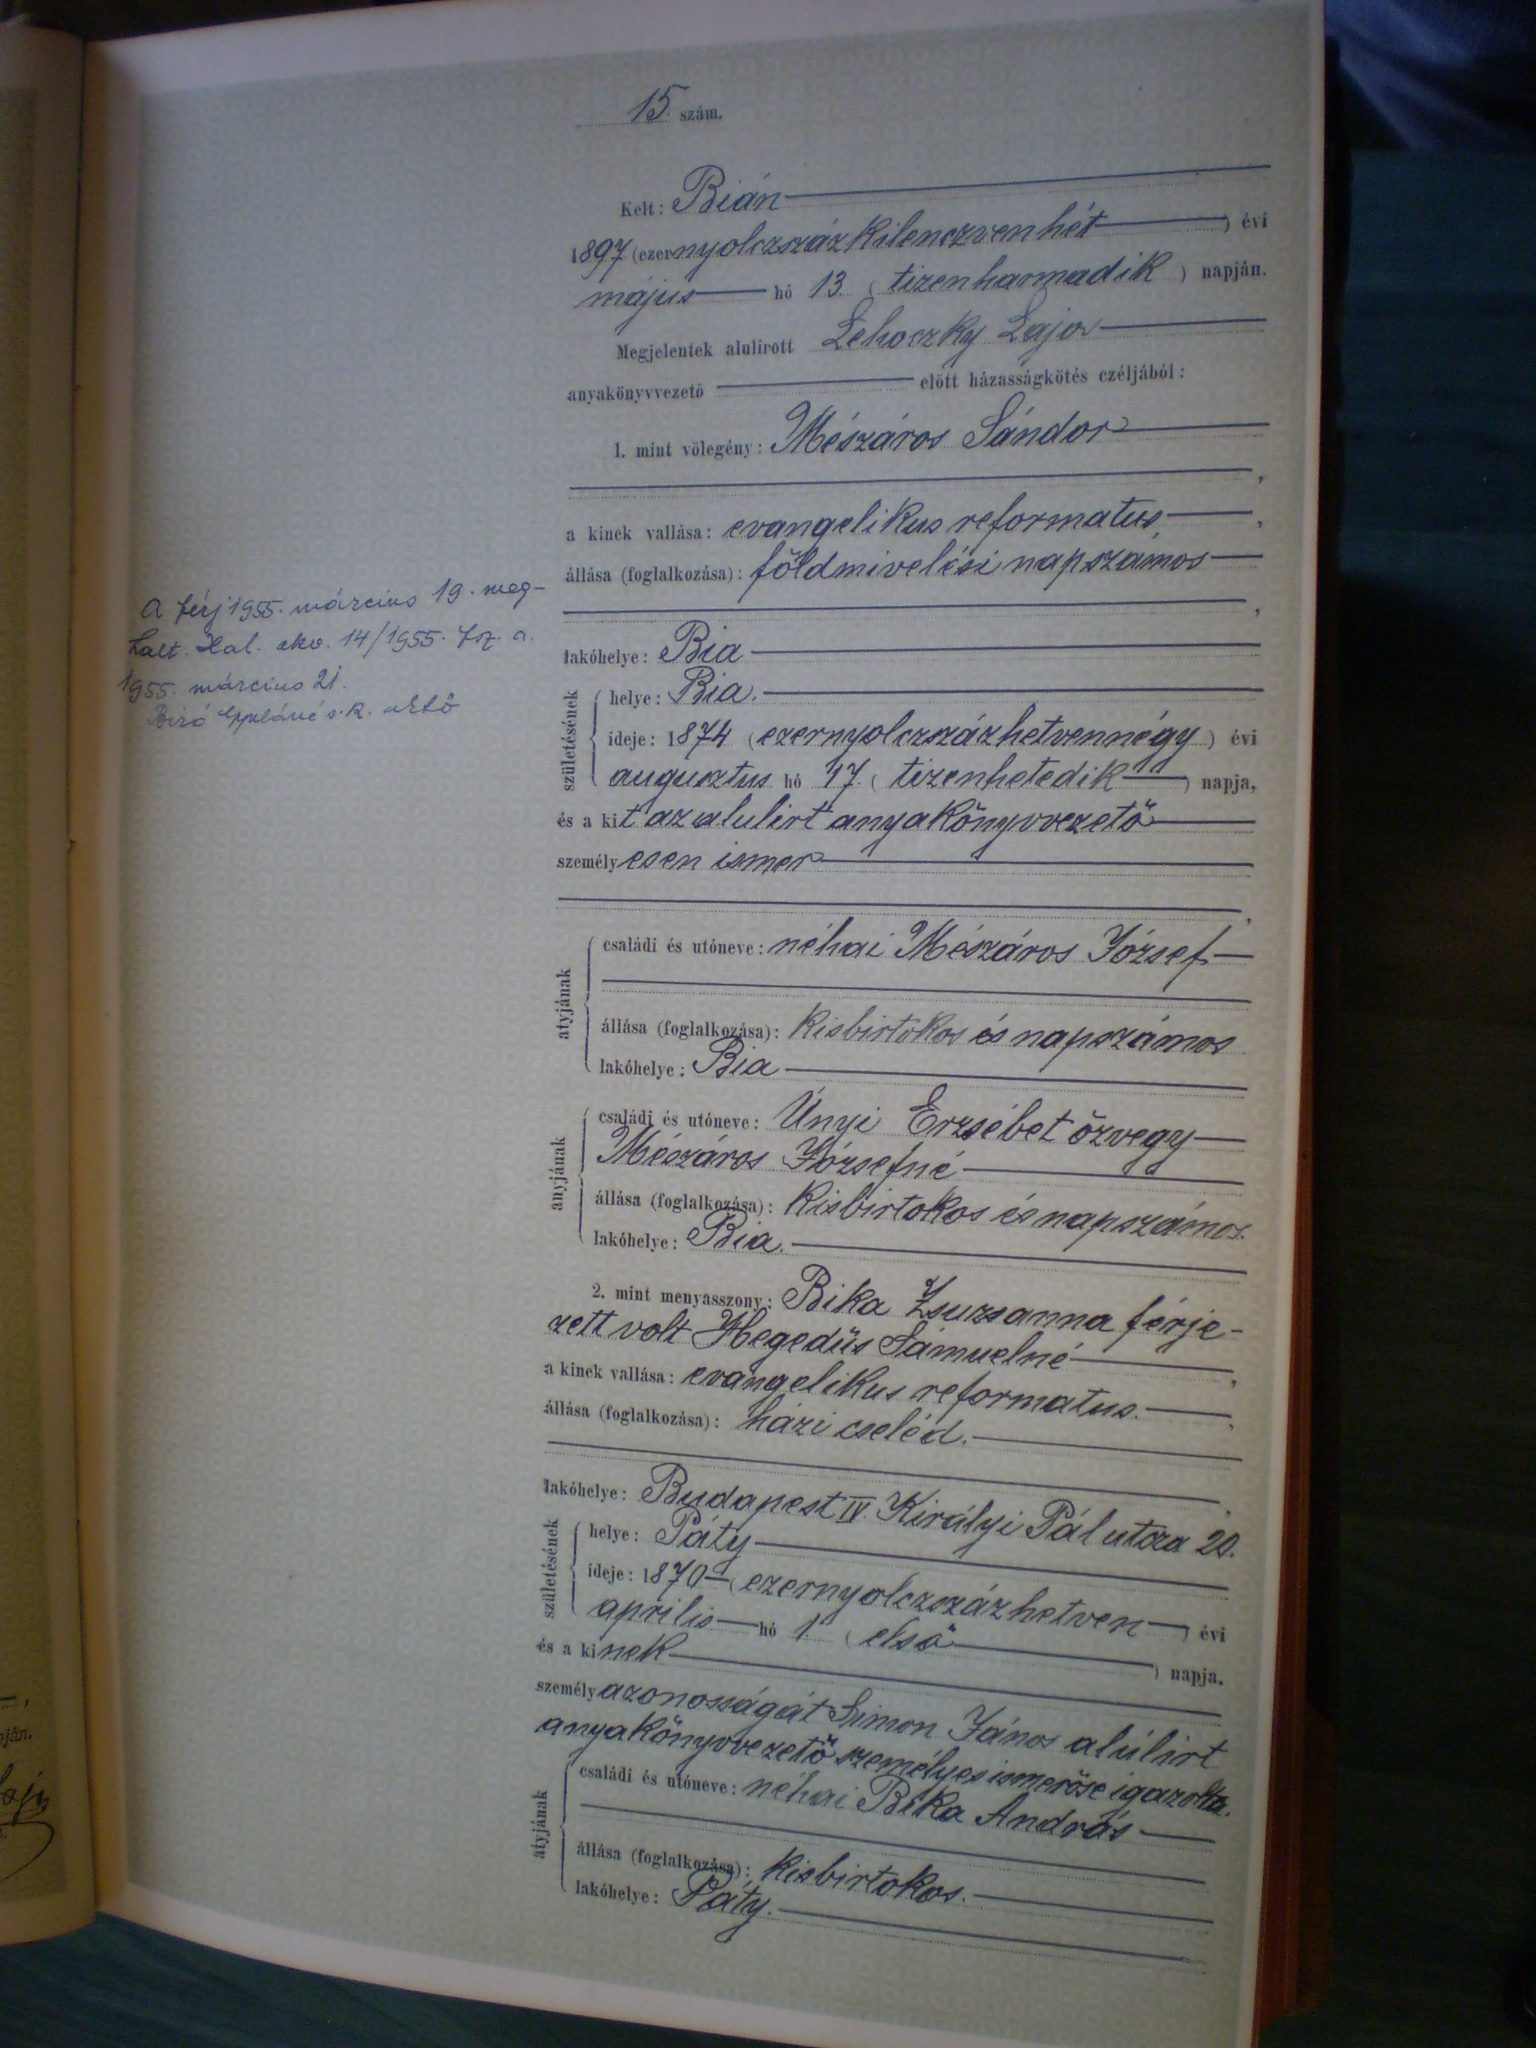 15. szám.
Kelt: Bián
1897 (ezernyolczszázkilenczvenhét) évi
május hó 13. (tizenharmadik) napján.
Megjelentek alulirott Lehoczky Lajos
anyakönyvvezető előtt házasságkötés czéljából:
1. mint vőlegény: Mészáros Sándor
a kinek vallása: evangelikus reformatus,
állása (foglalkozása): földmivelési napszámos
lakóhelye: Bia
születésének helye: Bia.
ideje: 1874 (ezernyolczszázhetvennégy) évi
augusztus hó 17. (tizenhetedik) napja,
és a kit az alulirt anyakönyvvezető
személyesen ismer
atyjának családi és utóneve: néhai Mészáros József
állása (foglalkozása): Kisbirtokos és napszámos
lakóhelye: Bia
anyjának családi és utóneve: Únyi Erzsébet özvegy
Mészáros Józsefné
állása (foglalkozása): Kisbirtokos és napszámos.
lakóhelye: Bia.
2. mint menyasszony: Bika Zsuzsanna férje-
zett volt Hegedüs Sámuelné
a kinek vallása: evangelikus reformatus.
állása (foglalkozása): házi cseléd.
lakóhelye: Budapest IV. Királyi Pál utcza 20.
születésének helye: Páty
ideje: 1870 (ezernyolczszázhetven) évi
aprilis hó 1. (első) napja.
és a kinek
személyazonosságát Simon János alúlirt
anyakönyvvezető személyes ismerőse igazolta.
atyjának családi és utóneve: néhai Bika András
állása (foglalkozása): Kisbirtokos.
lakóhelye: Páty.
A férj 1955. március 19. meg-
halt. Hal. akv. 14/1955. fsz. a.
1955. március 21.
Biró s.k. aktő
pján.